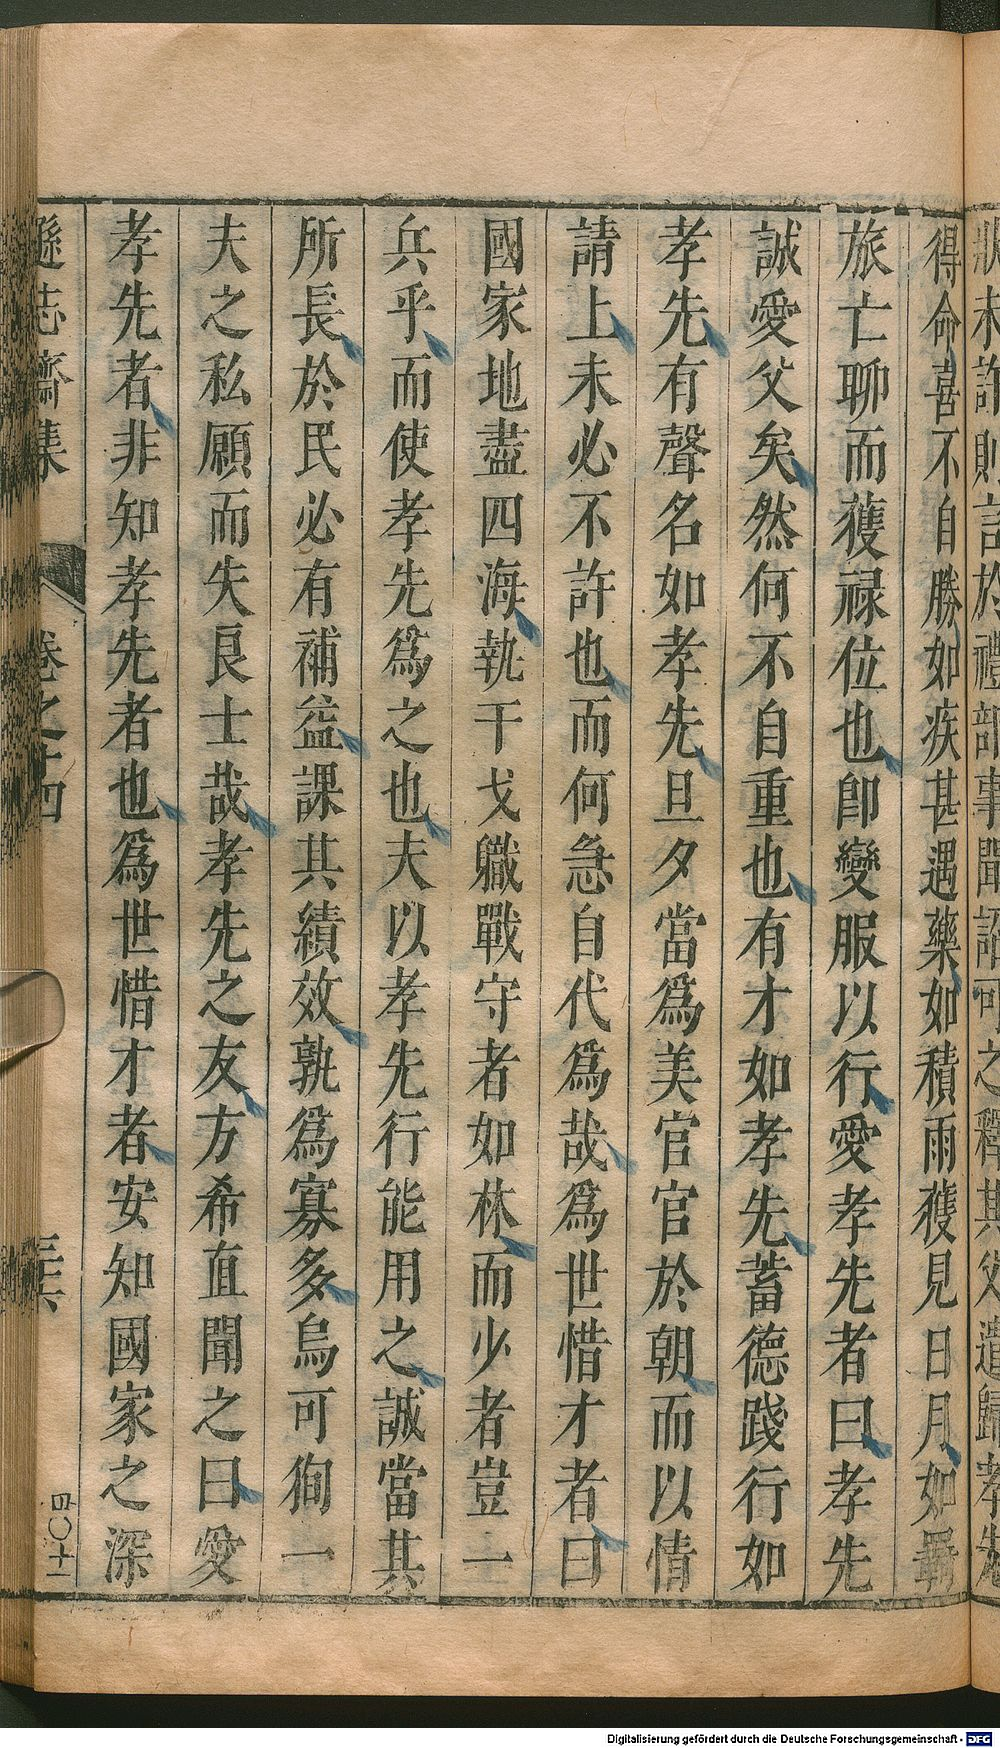 狀未許則言於禮部事聞詔可之釋其父遣歸孝先
得命喜不自勝如疾甚遇藥如積雨獲見日月如羈
旅亡聊而獲祿位也卽變服以行愛孝先者曰孝先
誠愛父矣然何不自重也有才如孝先蓄德踐行如
孝先有聲名如孝先旦夕當爲美官官於朝而以情
請上未必不許也而何急自代爲哉爲世惜才者曰
國家地盡四海執干戈職戰守者如林而少者豈一
兵乎而使孝先爲之也夫以孝先行能用之誠當其
所長於民必有補益課其績效孰爲寡多烏可徇一
夫之私願而失良士哉孝先之友方希直聞之曰愛
孝先者非知孝先者也爲世惜才者安知國家之深
遜志齋集 卷之十四 三六 四〇十二
Digitalisierung gefördert durch die Deutsche Forschungsgemeinschaft - DFG